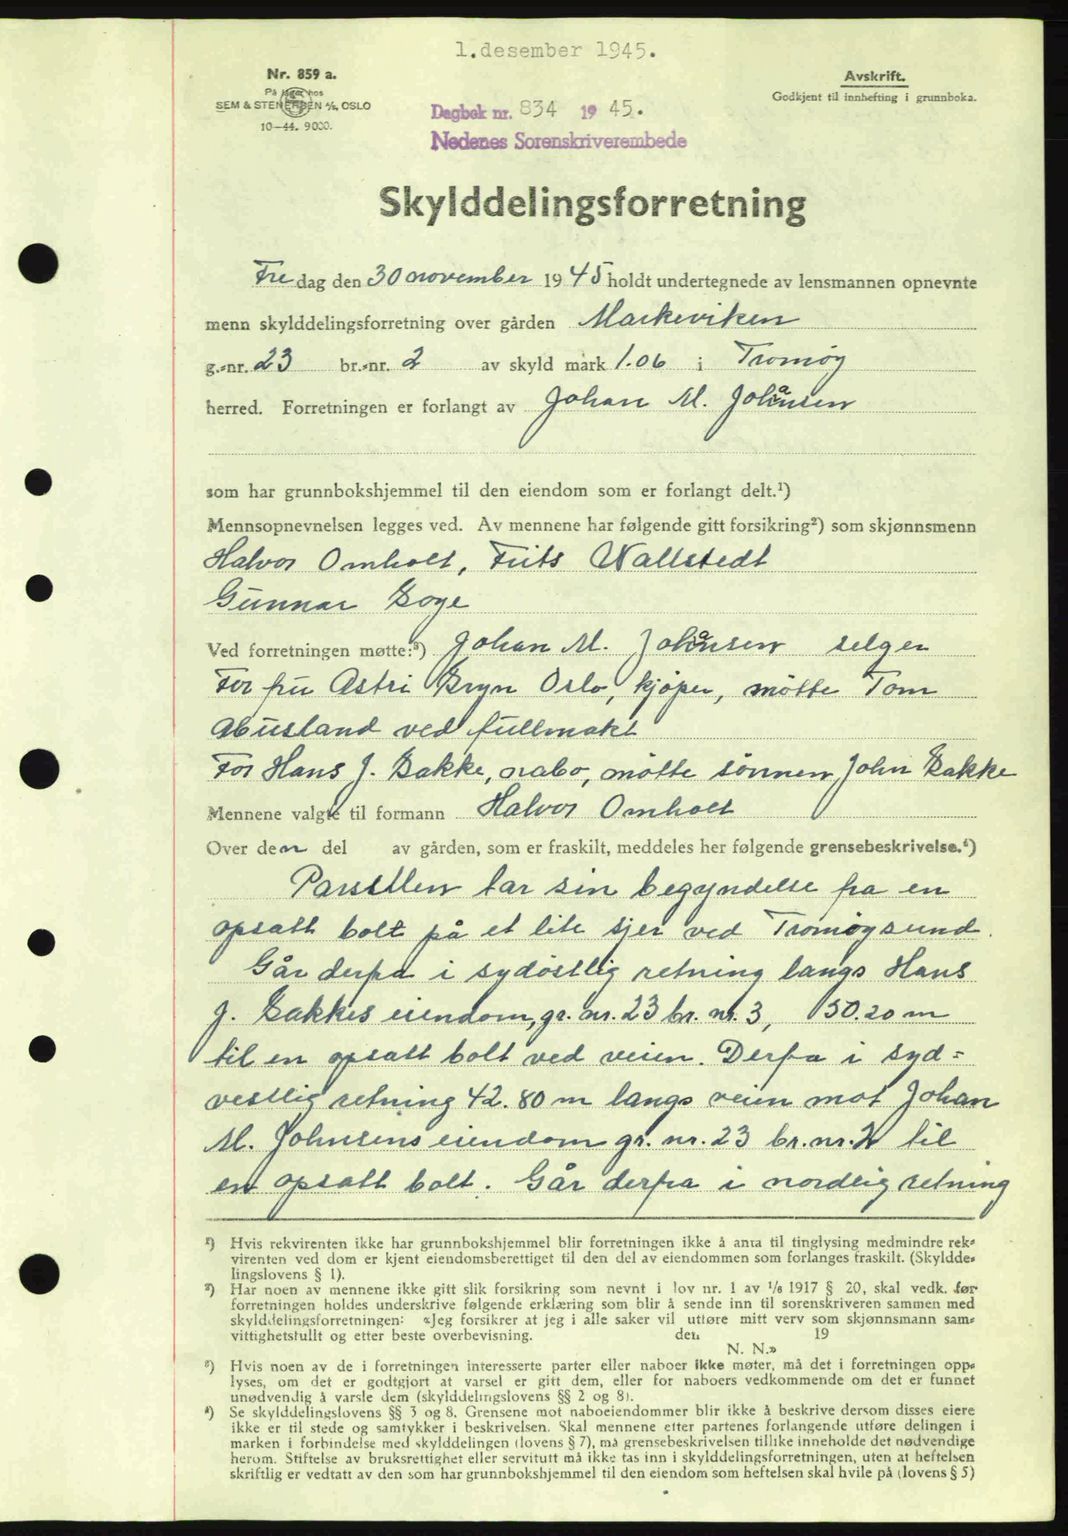 1.desember 1945.
Nr. 859 a.
På lager hos
SEM & STENERSEN A/S, OSLO
10-44. 9000.
Avskrift.
Godkjent til innhefting i grunnboka.
Dagbok nr. 834 1945.
Nedenes Sorenskriverembede
Skylddelingsforretning
Fredag den 30 november 1945 holdt undertegnede av lensmannen opnevnte
menn skylddelingsforretning over gården Markeviken
g.-nr. 23 br.-nr. 2 av skyld mark 1.06 i Tromøy
herred. Forretningen er forlangt av Johan M. Johansen
som har grunnbokshjemmel til den eiendom som er forlangt delt.¹)
Mennsopnevnelsen legges ved. Av mennene har følgende gitt forsikring²) som skjønnsmenn
Halvor Omholt, Frits Wallstedt
Gunnar Boye
Ved forretningen møtte:³) Johan M. Johansen selger
For fru Astri Gryn Oslo, kjøper, møtte Tom
Abusland ved fullmakt
For Hans J. Bakke, nabo, møtte sønnen John Bakke
Mennene valgte til formann Halvor Omholt
Over den del av gården, som er fraskilt, meddeles her følgende grensebeskrivelse.⁴)
Parsellen tar sin begyndelse fra en
opsatt bolt på et lite sjer ved Tromøysund.
Går derfra i sydøstlig retning langs Hans
J. Bakkes eiendom, gr. nr. 23 br. nr. 3, 50.20 m
til en opsatt bolt ved veien. Derfra i syd=
vestlig retning 42.80 m langs veien mot Johan
M. Johnsens eiendom gr. nr. 23 br. nr. 2 til
en opsatt bolt. Går derfra i nordlig retning
¹) Hvis rekvirenten ikke har grunnbokshjemmel blir forretningen ikke å anta til tinglysing medmindre rek-
virenten ved dom er kjent eiendomsberettiget til den del av eiendommen som forlanges fraskilt. (Skyldde-
lingslovens § 1).
²) Har noen av mennene ikke gitt slik forsikring som nevnt i lov nr. 1 av 1/6 1917 § 20, skal vedk. før
forretningen holdes underskrive følgende erklæring som blir å sende inn til sorenskriveren sammen med
skylddelingsforretningen: «Jeg forsikrer at jeg i alle saker vil utføre mitt verv som skjønnsmann sam-
vittighetsfullt og etter beste overbevisning. den 19
N. N.»
³) Hvis noen av de i forretningen interesserte parter eller naboer ikke møter, må det i forretningen opp-
lyses, om det er godtgjort at varsel er gitt dem, eller for naboers vedkommende om det er funnet
unødvendig å varsle dem (skylddelingslovens §§ 2 og 8).
⁴) Se skylddelingslovens §§ 3 og 8. Grensene mot naboeiendommer blir ikke å beskrive dersom disses eiere
ikke er til stede og samtykker i beskrivelsen. Skal mennene etter partenes forlangende utføre delingen i
marken i forbindelse med skylddelingen (lovens § 7), må grensebeskrivelsen tillike inneholde det nødvendige
herom. Stiftelse av bruksrettighet eller servitutt må ikke tas inn i skylddelingsforretningen, uten at heftelsen
skriftlig er vedtatt av den som har grunnbokshjemmel til den eiendom som heftelsen skal hvile på (lovens § 5)